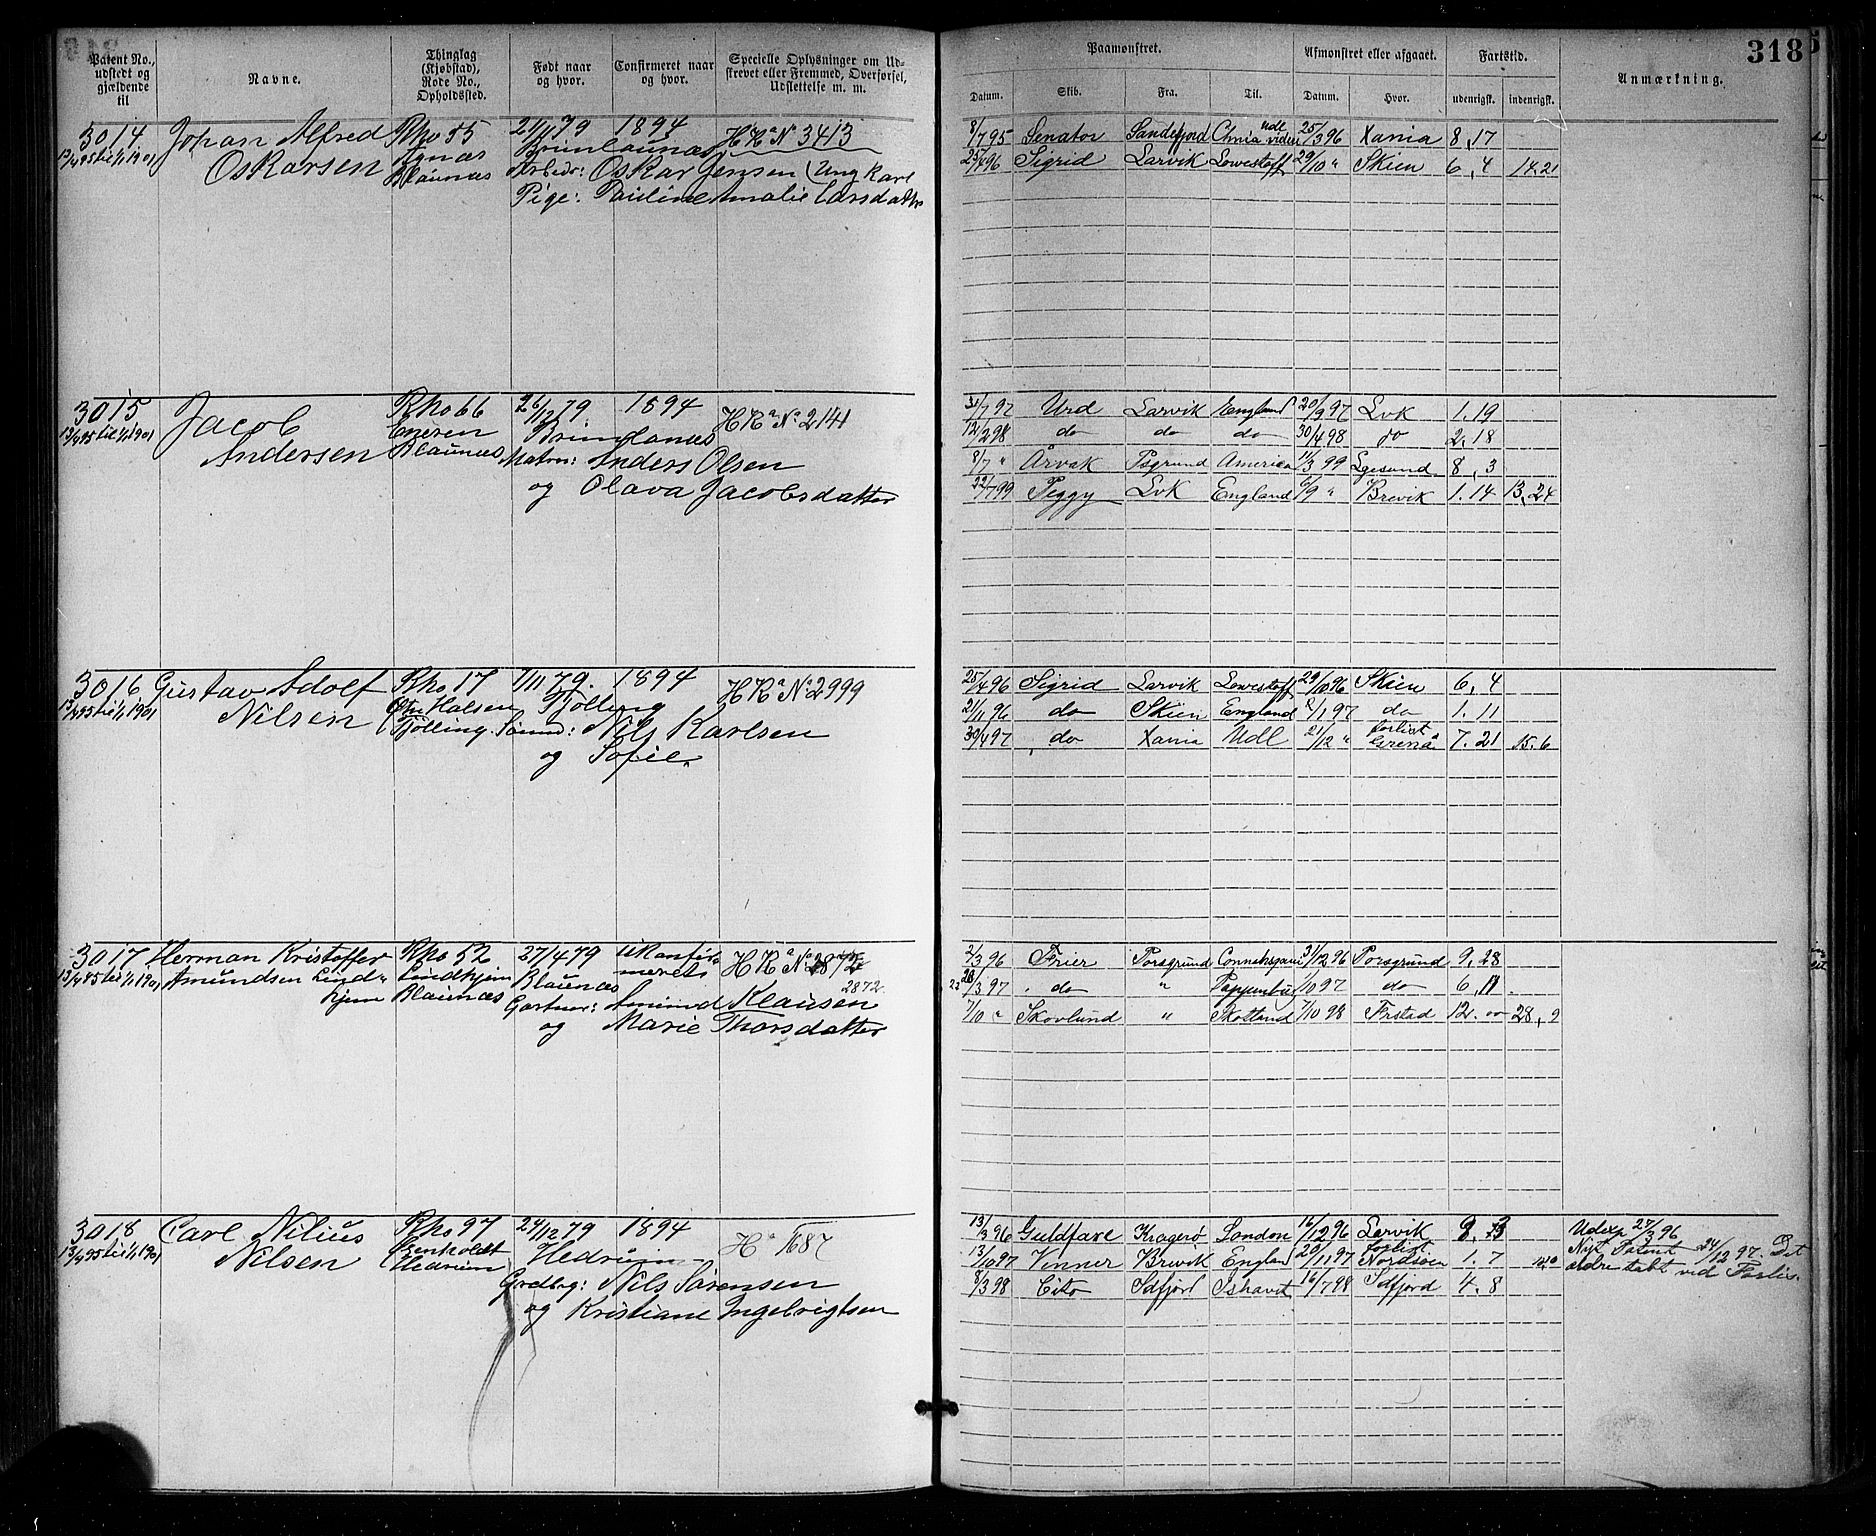 Patent No., udstedt og gjældende til
Navne.
Thinglag (Kjøbstad), Rode No., Opholdssted.
Født naar og hvor.
Confirmeret naar og hvor.
Specielle Oplysninger om Udskrevet eller Fremmed, Overførsel, Udslettelse m. m.
Paamønstret.
Afmønstret eller afgaaet.
Fartstid.
Anmærkning.
318
Datum. Skib. Fra. Til. Datum. Hvor. udenrigsk. indenrigsk.
3014 Johan Alfred Rho 85 21/4 79 1894 HR a No 3413
13/4 95 til 1/1 1901 Oskarsen Agnæs Brunlaunæs
Blaunæs Arbedr: Oskar Jensen (Ung Karl
Pige: Pauline Amalie Larsdatter
8/7 95 Senator Sandefjord Chnia 25/3 96 Xania 8,17
25/4 96 Sigrid Larvik Lowestoff 29/10 " Skien 6,4 14.21
3015 Jacob Rho 66 26/12 79 1894 HR a No 2141
13/4 95 til 1/1 1901 Andersen Blaunæs Brunlanæs
Matros: Anders Olsen
og Olava Jacobsdatter
31/7 97 Urd Larvik England 20/9 97 Lvk 1.19
12/2 98 do do do 30/4 98 do 2.18
8/7 " Årvak Psgrund America 11/3 99 8,3
22/7 99 Peggy Lvk England 6/9 " Brevik 1.14 13,24
3016 Gustav Adolf Rho 17 7/11 79. 1894 HR a No 2999
13/4 95 til 1/1 1901 Nilsen Halsen Tjølling
Tjølling. Nils Karlsen
og Sofie
25/4 96 Sigrid Larvik Lowestoff 29/10 96 Skien 6,4
21/11 96 do Skien England 2/1 97 do 1.11
30/4 97 do Xania Udl 21/12 " forlist Grenå 7.21 15.6
3017 Herman Kristoffer Rho 52 27/4 79 ukonfir- HR a No
13/4 95 til 1/1 1901 Amundsen Lind- Lindhjem Blaunæs merets 2872
hjem Blaunæs Gartner: Amund Klausen
og Marie Thorsdatter
2/3 96 Frier Porsgrund 31/12 96 Porsgrund 9,28
/3 97 do " Pappenburg 1/10 97 do 6,11
7/10 " Skovlund " Skotland 7/10 98 Frstad 12. 00 28,9
3018 Carl Nilius Rho 97 24/12 79 1894 H a 1687
13/4 95 til 1/1 1901 Nilsen Hedrum Hedrum
Nils Sørensen
og Kristiane Ingebrigtsen
13/3 96 Guldfaxe Kragerø London 16/12 96 Larvik 9.3 Udexp 27/3 96
13/10 97 Vinner Brevik England 20/11 97 forlist Nordsøen 1.7 Nyt Patent 24/12 97. Det
8/3 98 Cito Sdfjord Ishavet 16/7 98 Sdfjord 4.8 ældre tabt ved Forlis.